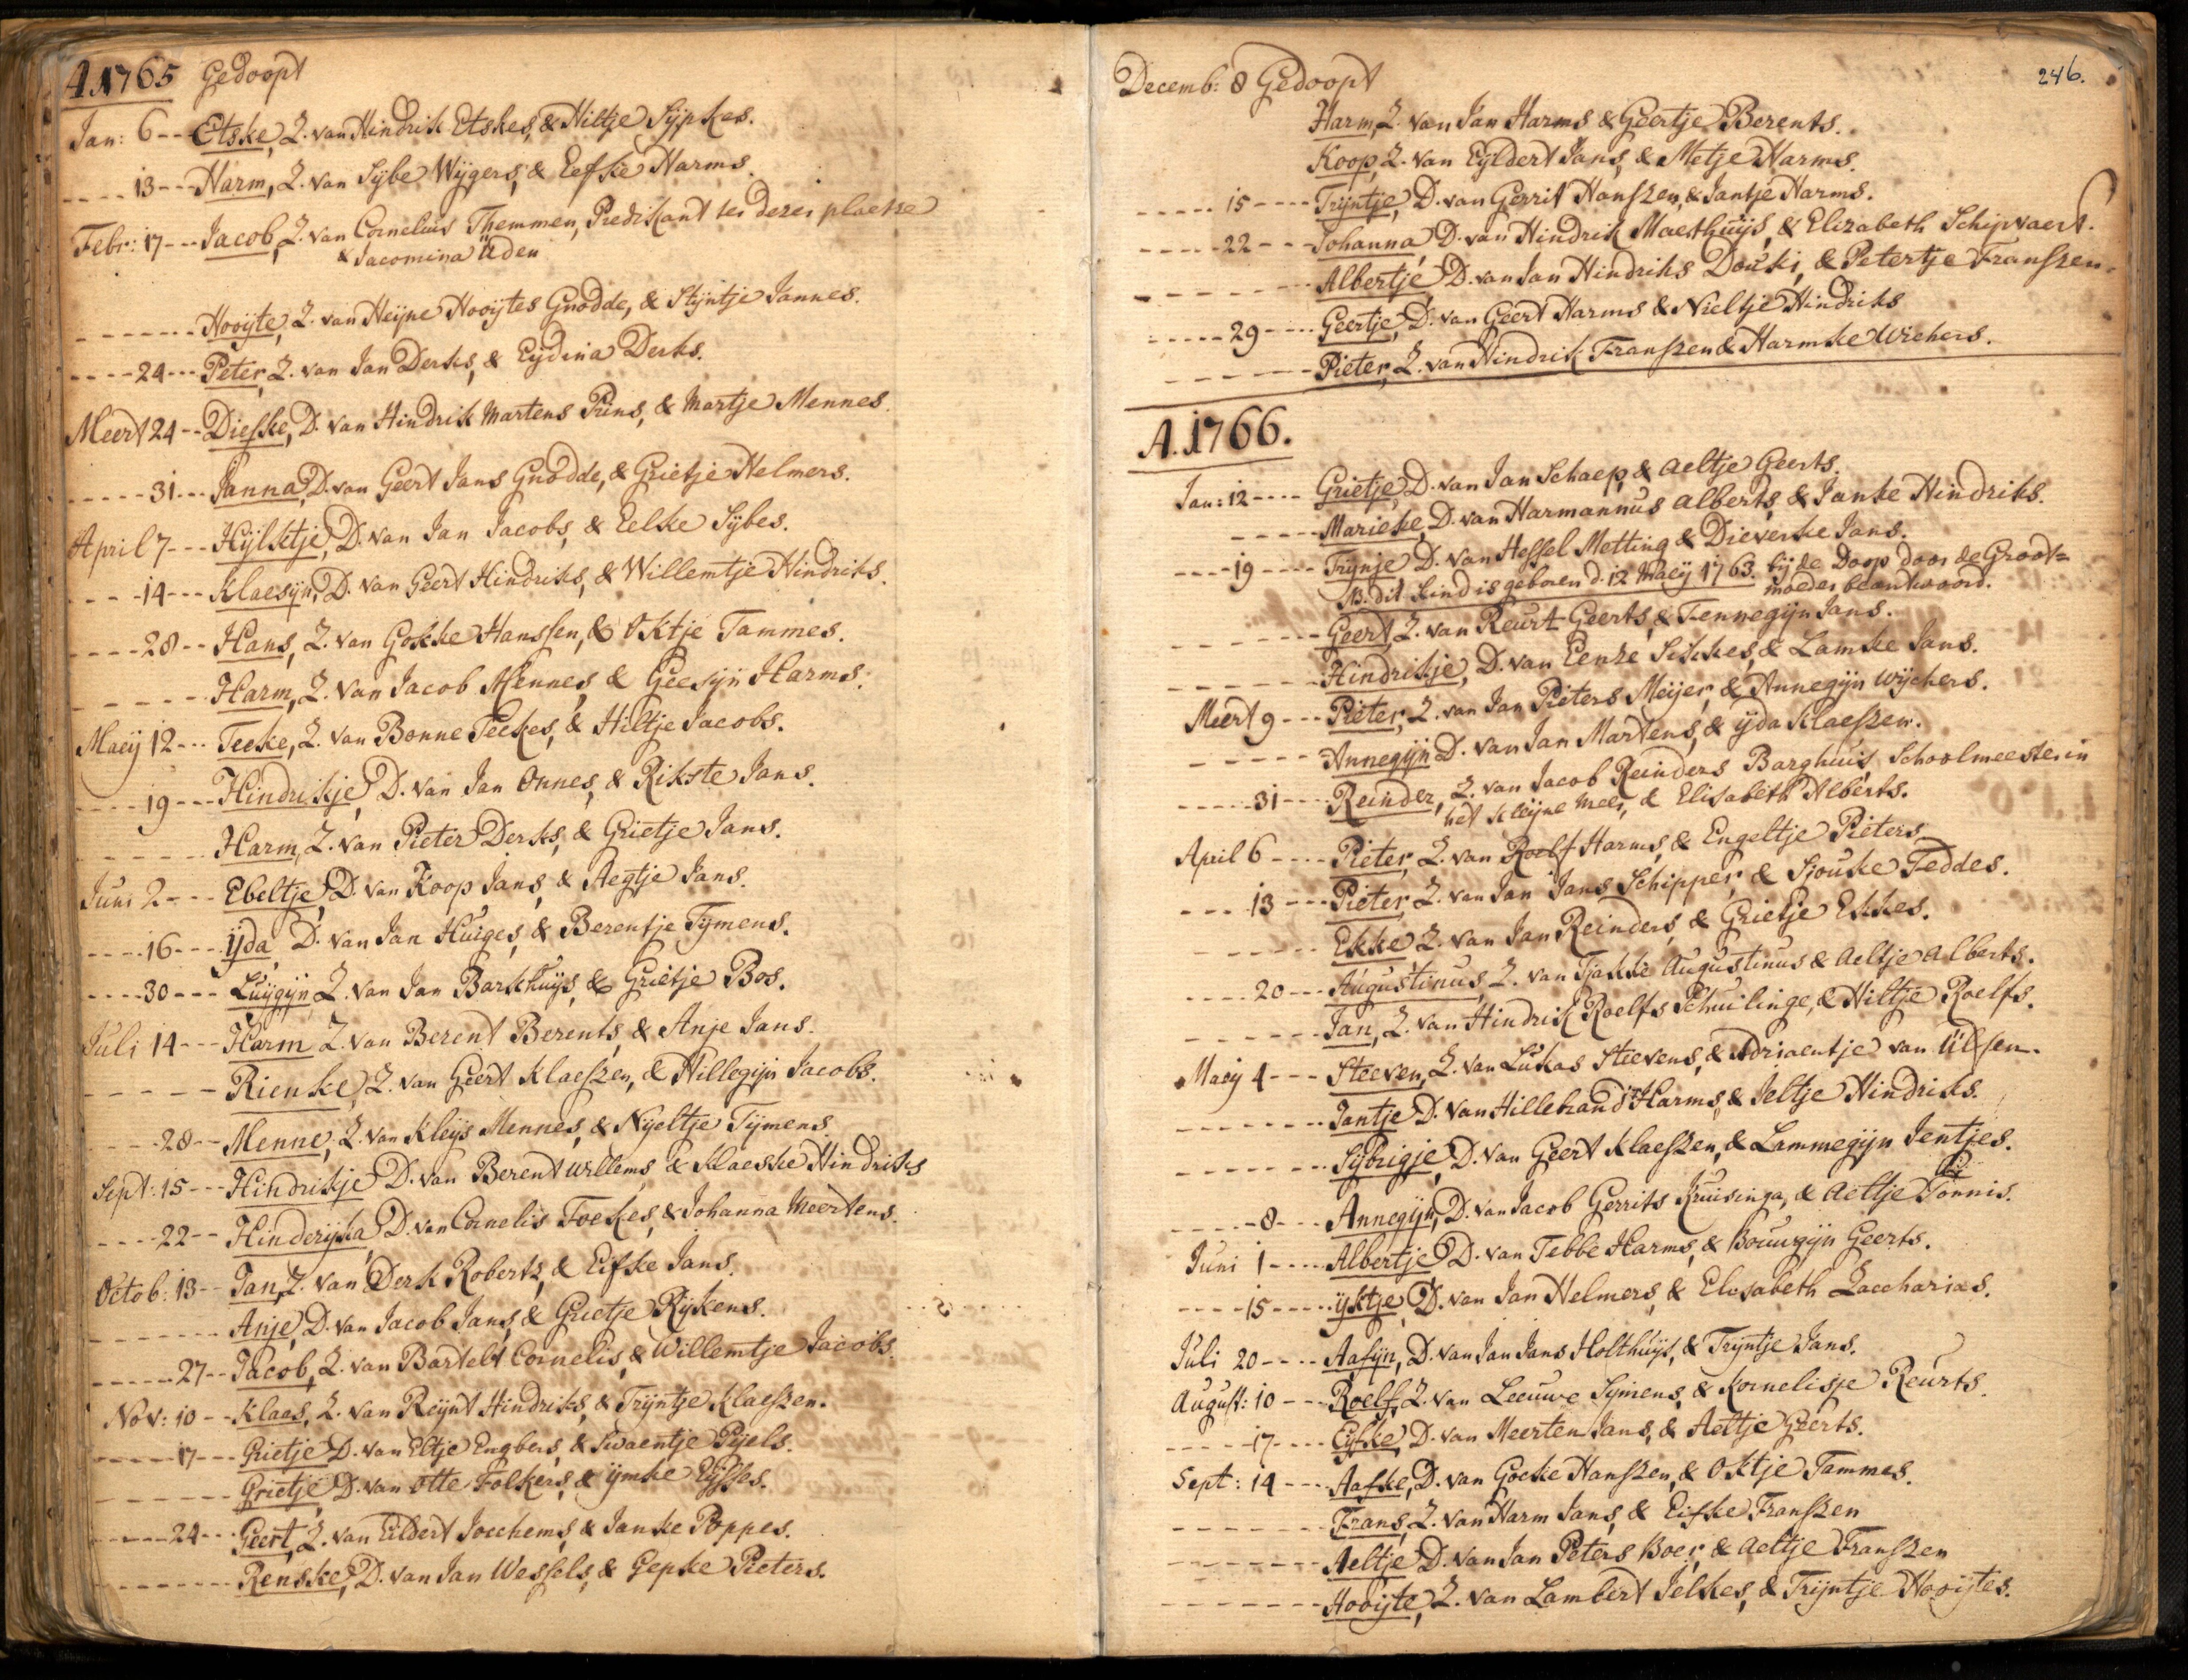 A. 1765 Gedoopt
Jan: 6 -- Etske, Z. van Hindrik Etskes, & Hiltje Sijpkes.
---- 13 --- Harm, Z. van Sijbe Wijgers, & Eefke Harms.
Febr: 17 --- Jacob, Z. van Cornelius Themmen, Predikant ter dezer plaetse
& Jacomina Uden
------ Hooijte, Z. van Heijne Hooijtes Gnodde, & Stijntje Jannes.
---- 24 --- Peter, Z. van Jan Derks, & Eijdina Derks.
Meert 24 -- Dieske, D. van Hindrik Martens Prins, & Martje Mennes.
----- 31 --- Janna, D. van Geert Jans Gnodde, & Grietje Helmers.
April 7 --- Hijlktje, D. van Jan Jacobs, & Eelke Sijbes.
---- 14 --- Klaesijn, D. van Geert Hindriks, & Willemtje Hindriks.
---- 28 -- Hans, Z. van Gokke Hanssen, & Oktje Tammes.
------ Harm, Z. van Jacob Mennes, & Geesijn Harms.
Maeij 12 --- Teeke, Z. van Bonne Teekes, & Hiltje Jacobs.
---- 19 --- Hindrikje, D. van Jan Onnes, & Rikste Jans.
------ Harm, Z. van Pieter Derks, & Grietje Jans.
Juni 2 --- Ebeltje, D. van Koop Jans, & Aegtje Jans.
---- 16 --- ijda, D. van Jan Huiges, & Berentje Tijmens.
---- 30 --- Luijgijn, Z. van Jan Barkhuijs, & Grietje Bos.
Juli 14 --- Harm Z. van Berent Berents, & Anje Jans.
----- Rienke, Z. van Geert Klaeszen, & Hillegijn Jacobs.
-- 28 -- Menne, Z. van Kleijs Mennes, & Nijeltje Tijmens
Sept: 15 --- Hindrikje D. van Berent Willems & Klaeske Hindriks
---- 22 -- Hinderijka, D. van Cornelis Foekes, & Johanna Meertens.
Octob: 13 -- Jan, Z. van Derk Roberts, & Eifke Jans.
------ Anje, D. van Jacob Jans, & Grietje Rijkens.
----- 27 -- Jacob, Z. van Bartelt Cornelis, & Willemtje Jacobs.
Nov: 10 -- Klaas, Z. van Reijnt Hindriks, & Trijntje Klaeszen.
----- 17 --- Grietje D. van Eltje Engbers, & Swaentje Pijels.
------ Grietje, D. van Otte Folkers, & ijmke Eijsses.
----- 24 --- Geert, Z. van Eildert Jocchems, & Janke Poppes.
------ Renske, D. van Jan Wessels, & Gepke Pieters.
246.
Decemb: 8 Gedoopt
Harm, Z. van Jan Harms & Geertje Berents.
Koop, Z. van Eijldert Jans, & Metje Harms.
----- 15 ---- Trijntje, D. van Gerrit Hanszen, & Jantje Harms.
----- 22 --- Johanna, D. van Hindrik Maethuijs, & Elizabeth Schipvaert.
------ Albertje D. van Jan Hindriks Douki, & Petertje Franszen.
----- 29 ---- Geertje, D. van Geert Harms & Nieltje Hindriks
------ Pieter, Z. van Hindrik Franszen & Harmke Wichers.
A. 1766.
Jan: 12 ---- Grietje, D. van Jan Schaep, & Aeltje Geerts.
----- Marieke, D. van Harmannus Alberts, & Janke Hindriks.
---- 19 ---- Trijnje D. van Hessel Metting & Dieverke Jans.
NB. dit kind is geboren d. 12 Maeij 1763. bij de Doop door de Groot=
moeder beantwoord.
----- Geert, Z. van Reurt Geerts, & Tennegijn Jans.
------ Hindrikje, D. van Eenze Sikkes, & Lamke Jans.
Meert 9 --- Pieter, Z. van Jan Pieters Meijer, & Annegijn Wijchers.
----- Annegijn D. van Jan Martens, & ijda Klaeszen.
----- 31 ---- Reinder, Z. van Jacob Reinders Barghuis, Schoolmeester in
het Kleijne Meer, & Elisabeth Alberts.
April 6 ---- Pieter, Z. van Roelf Harms, & Engeltje Pieters
---- 13 --- Pieter, Z. van Jan Jans Schipper, & Sjouke Feddes.
------ Ekke, Z. van Jan Reinders, & Grietje Ekkes.
---- 20 --- Augustinus, Z. van Tjakke Augustinus & Aeltje Alberts.
------ Jan, Z. van Hindrik Roelfs Schuilinge, & Hiltje Roelfs.
Maeij 4 --- Steeven, Z. van Lukas Steevens, & Adriaentje van Ulsen.
------ Jantje D. van Hillebrand Harms, & Jeltje Hindriks.
------ Sijbrigje, D. van Geert Klaeszen, & Lammegijn Jentjes.
----- 8 --- Annegijn, D. van Jacob Gerrits Kruisinga, & Aeltje Tonnis.
Juni 1 ---- Albertje D. van Tebbe Harms, & Bouwgijn Geerts.
---- 15 ---- ijktje, D. van Jan Helmers, & Elisabeth Zaccharias.
Juli 20 ---- Aafijn, D. van Jan Jans Holthuijs, & Trijntje Jans.
August: 10 ---- Roelf, Z. van Leeuwe Sijmens, & Kornelisje Reurts.
----- 17 ---- Eijfke, D. van Meerten Jans, & Aeltje Geerts.
Sept: 14 ---- Aafke, D. van Goeke Hanszen, & Oktje Tammes.
------ Frans, Z. van Harm Jans, & Eifke Franszen
------ Aeltje D. van Jan Peters Boer, & Aeltje Franszen
------ Hooijte, Z. van Lambert Jelkes, & Trijntje Hooijtes.